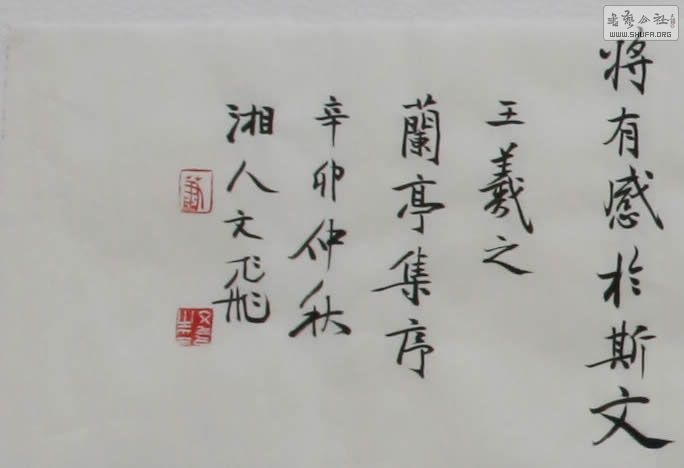 将有感於斯文
王羲之
蘭亭集序
辛卯仲秋
湘人文飛
書藝公社
WWW.SHUFA.ORG